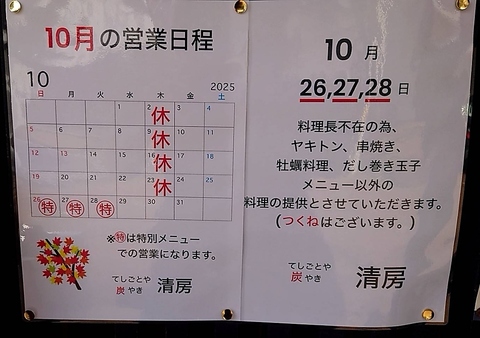 10月の営業日程
10
2025
日 月 火 水 木 金 土
1 2 3 4
休
5 6 7 8 9 10 11
休
12 13 14 15 16 17 18
休
19 20 21 22 23 24 25
休
26 27 28 29 30 31
特 特 特
※特は特別メニュー
での営業になります。
てしごとや
炭やき 清房
10月
26,27,28日
料理長不在の為、
ヤキトン、串焼き、
牡蠣料理、だし巻き玉子
メニュー以外の
料理の提供とさせていただきます。
(つくねはございます。)
てしごとや
炭やき 清房